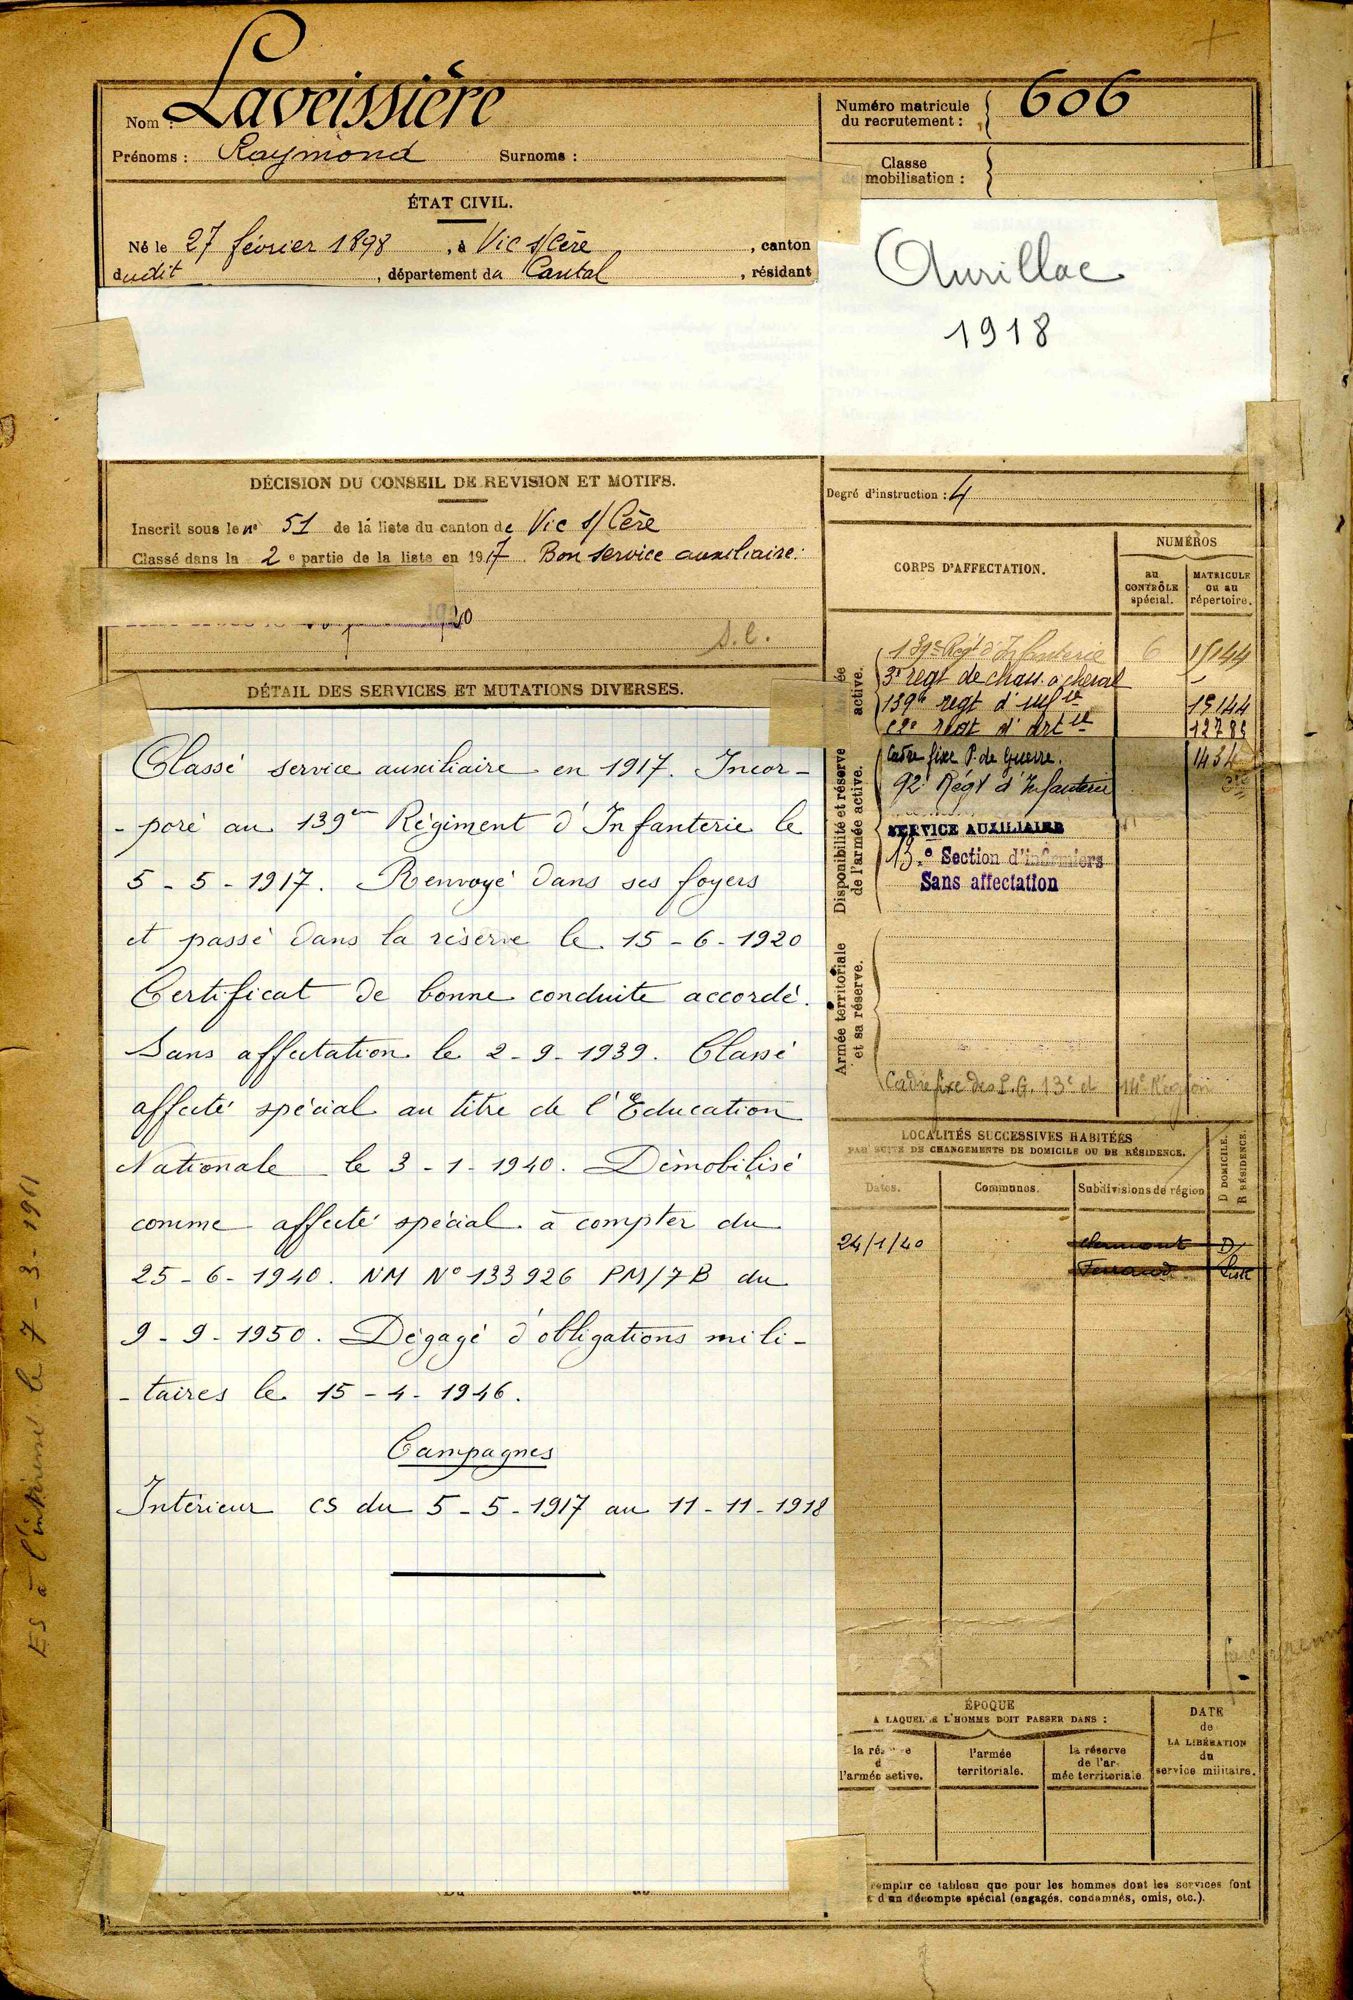 Nom : Laveissière
Prénoms : Raymond Surnoms :
Numéro matricule
du recrutement : 606
Classe
mobilisation :
ÉTAT CIVIL.
Né le 27 février 1898, à Vic s/Cère, canton
dudit, département du Cantal, résidant
Aurillac
1918
DÉCISION DU CONSEIL DE REVISION ET MOTIFS.
Inscrit sous le n° 51 de la liste du canton de Vic s/Cère
Classé dans la 2e partie de la liste en 1917. Bon service auxiliaire.
S.C.
DÉTAIL DES SERVICES ET MUTATIONS DIVERSES.
Classé service auxiliaire en 1917. Incor-
-poré au 139em Régiment d'Infanterie le
5-5-1917. Renvoyé dans ses foyers
et passé dans la réserve le 15-6-1920
Certificat de bonne conduite accordé.
Sans affectation le 2-9-1939. Classé
affecté spécial au titre de l'Education
Nationale le 3-1-1940. Démobilisé
comme affecté spécial à compter du
25-6-1940. NM N° 133926 PM/7B du
9-9-1950. Dégagé d'obligations mili-
-taires le 15-4-1946.
Campagnes
Intérieur CS du 5-5-1917 au 11-11-1918
Degré d'instruction : 4
CORPS D'AFFECTATION.
NUMÉROS
au CONTRÔLE spécial.
MATRICULE ou au répertoire.
active.
139e Régt d'Infanterie 6 15144
3e regt de chass. a cheval
139e regt d'infie 15144
regt d'artie 12785
Disponibilité et réserve
de l'armée active.
Cadre fixe P. de Guerre. 1434
92e Régt d'Infanterie
SERVICE AUXILIAIRE
13.e Section d'infirmiers
Sans affectation
Armée territoriale
et sa réserve.
Cadre fixe des P.G. 13e et 14e Région
LOCALITÉS SUCCESSIVES HABITÉES
PAR SUITE DE CHANGEMENTS DE DOMICILE OU DE RÉSIDENCE.
D DOMICILE.
R RÉSIDENCE.
Dates. Communes. Subdivisions de région
24/1/40 Clermont D/
Ferrand
ÉPOQUE
A LAQUELLE L'HOMME DOIT PASSER DANS :
l'armée active.
l'armée
territoriale.
la réserve
de l'ar-
mée territoriale
DATE
de
LA LIBÉRATION
du
service militaire.
remplir ce tableau que pour les hommes dont les services font
d'un décompte spécial (engagés, condamnés, omis, etc.).
ES à l'intéressé le 7-3-1961